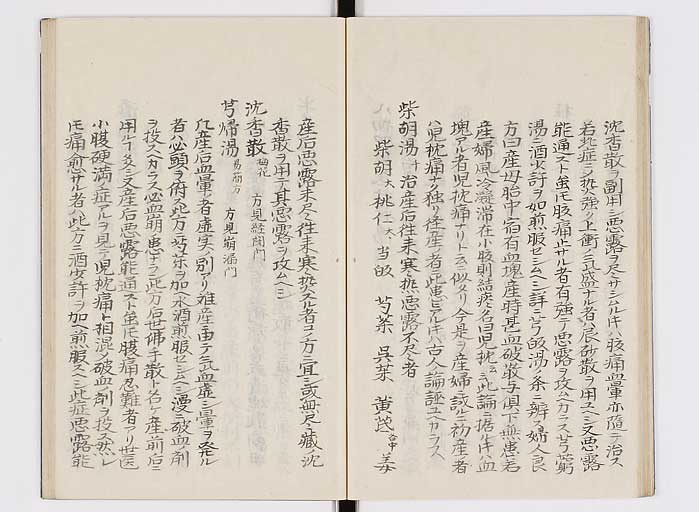 沈香散ヲ副用シ悪露ヲ尽サシムル片ハ腹痛血暈亦随テ治ス
若此症ニシテ熱強ク上衝シ盛ナル者ハ辰砂散ヲ用スヘシ又悪露
能通スト虽𪜈腹痛止サル者有強テ悪露ヲ攻ムヘカラス芎藭
湯ニ酒少許ヲ加煎服セシムヘシ詳ニ芎皈湯ノ条ニ辨ス婦人良
方曰産母胎中宿有血塊産時其血破散与児下無患若
産婦風冷凝滞在小腹則結疾名曰児枕云云此論ニ据ル片ハ血
塊アル者児枕痛ナリト云ニ似タリ今是ヲ産婦ニ試ルニ初産者
ハ児枕痛ナク独リ経産ノ者ニ此患ヒアル片ハ古人ノ論誣ユヘカラス
柴胡湯 治産后往来寒熱悪露不尽者
柴胡大 桃仁大 当皈 芍薬 呉茱 黄芪各中 姜
産后悪露未尽往来寒熱スル者コノ方ニ宜シ或無尽蔵ノ沈
香散ヲ用テ其悪露ヲ攻ムヘシ
沈香散 方見経閉門
芎帰湯 易簡方 方見崩漏門
凡産后血暈ノ者虚実ノ別アリ難産ニ由テ亡血虚シ暈ヲ発ル
者ハ必頭ヲ俯ス此方ニ芍薬ヲ加水酒煎服セシムヘシ漫ニ破血ノ剤
ヲ投スヘカラス必血崩ノ患ヒアラン此方后世佛手散ト名ケ産前后ニ
用ルヿ多シ又産后悪露能通スト虽𪜈腹痛忍難者アリ世医
小腹硬満ノ症アルヲ見テ児枕痛ト相混メ破血剤ヲ投ス然レ
𪜈痛愈サル者ハ此方ニ酒少許ヲ加ヘ煎服スヘシ此症悪露能